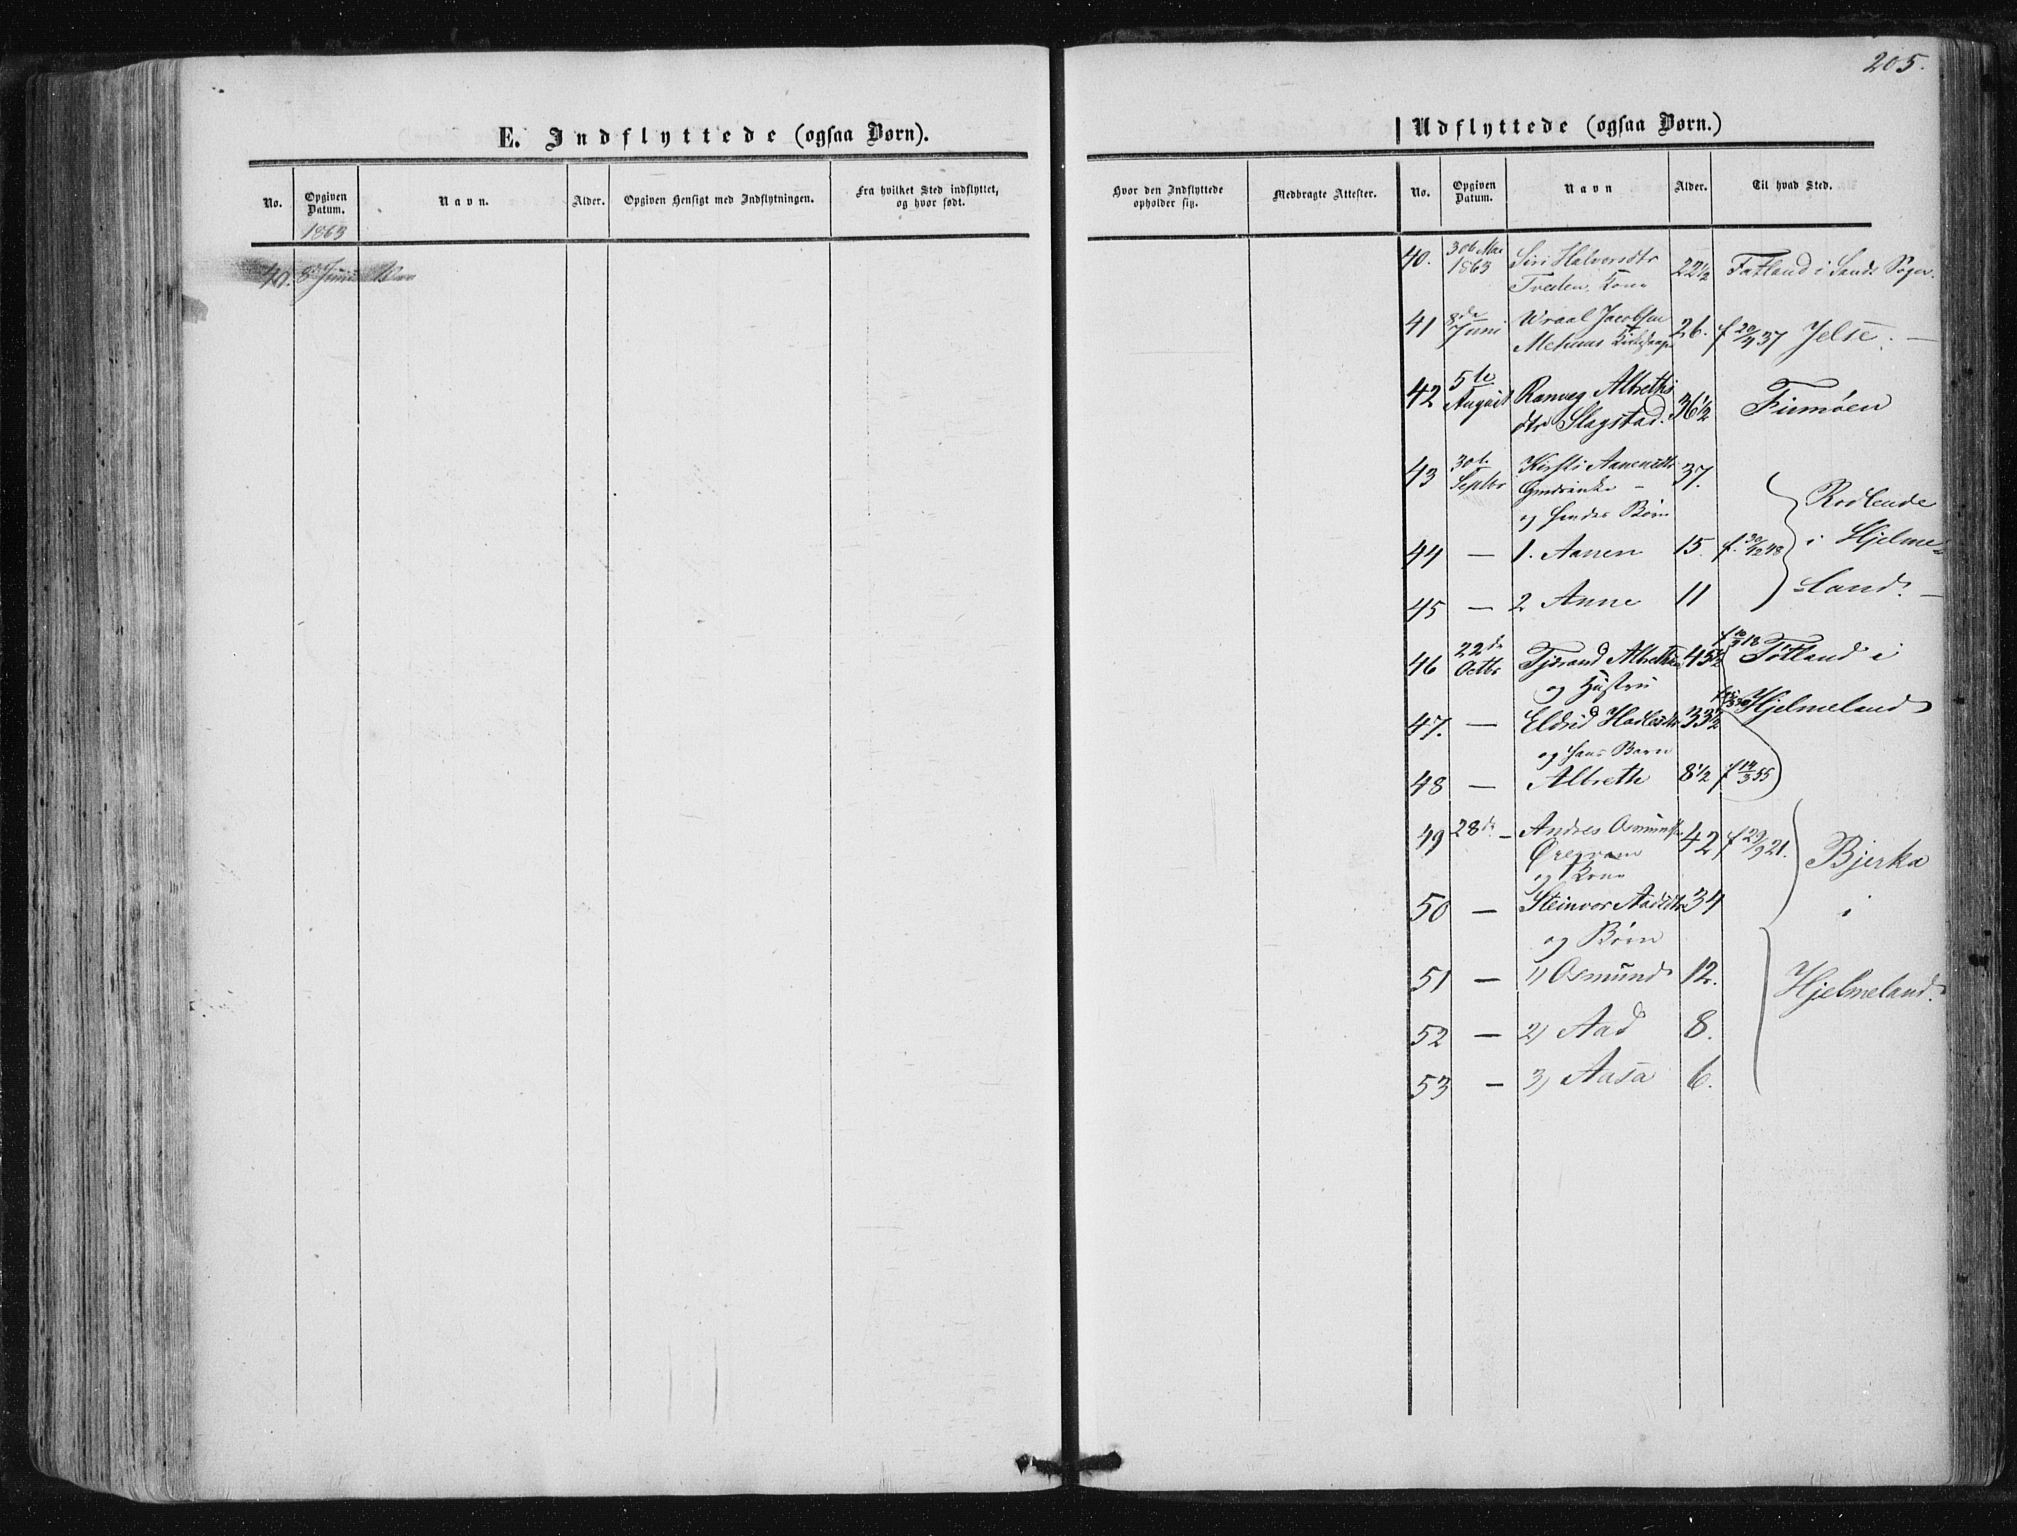 205.
E. Indflyttede (ogsaa Børn).
No. Opgiven Datum. Navn. Alder. Opgiven Hensigt med Indflytningen. Fra hvilket Sted indflyttet, og hvor født.
1863
40. 8 Juni
Udflyttede (ogsaa Børn.)
Hvor den Indflyttede opholder sig. Medbragte Attester. No. Opgiven Datum. Navn Alder. Til hvad Sted.
40. 30te Mai 1863 Siri Halvorsdtr 22 1/2 Fatland i Sands Sogn.
Tveden, Kone
41 8de Juni Wraal Jacobsen 26. f 20/4 37 Jelse. —
Mehuus
42 5te August Ranveg Albrethsdtr Slagstad. 36 1/2 Finnøen
43 30te Septbr Kirsti Aanensdtr 37.
og hendes Børn
44 — 1. Aanen 15. f. 30/12 48
45 — 2 Anne 11
Rodlende
i Hjelmeland. —
46 22de Octbr Tjerand Albrethsen 45 1/2 f 10/3 18 Tøtland i
og Hustru
47. — Eldrid Hadlesdtr 33 1/2 Hjelmeland
og hans Barn
48 — Albreth 8 1/2 f 14/3 55
49 28de — Andres Osmundsen 42 f 29/9 21.
og Kone
50 — Steinvor Aadsdtr 34
og Børn
51 — 1) Osmund 12.
52 — 2) Aad 8.
53 — 3) Aasa 6.
Bjerka
i
Hjelmeland.